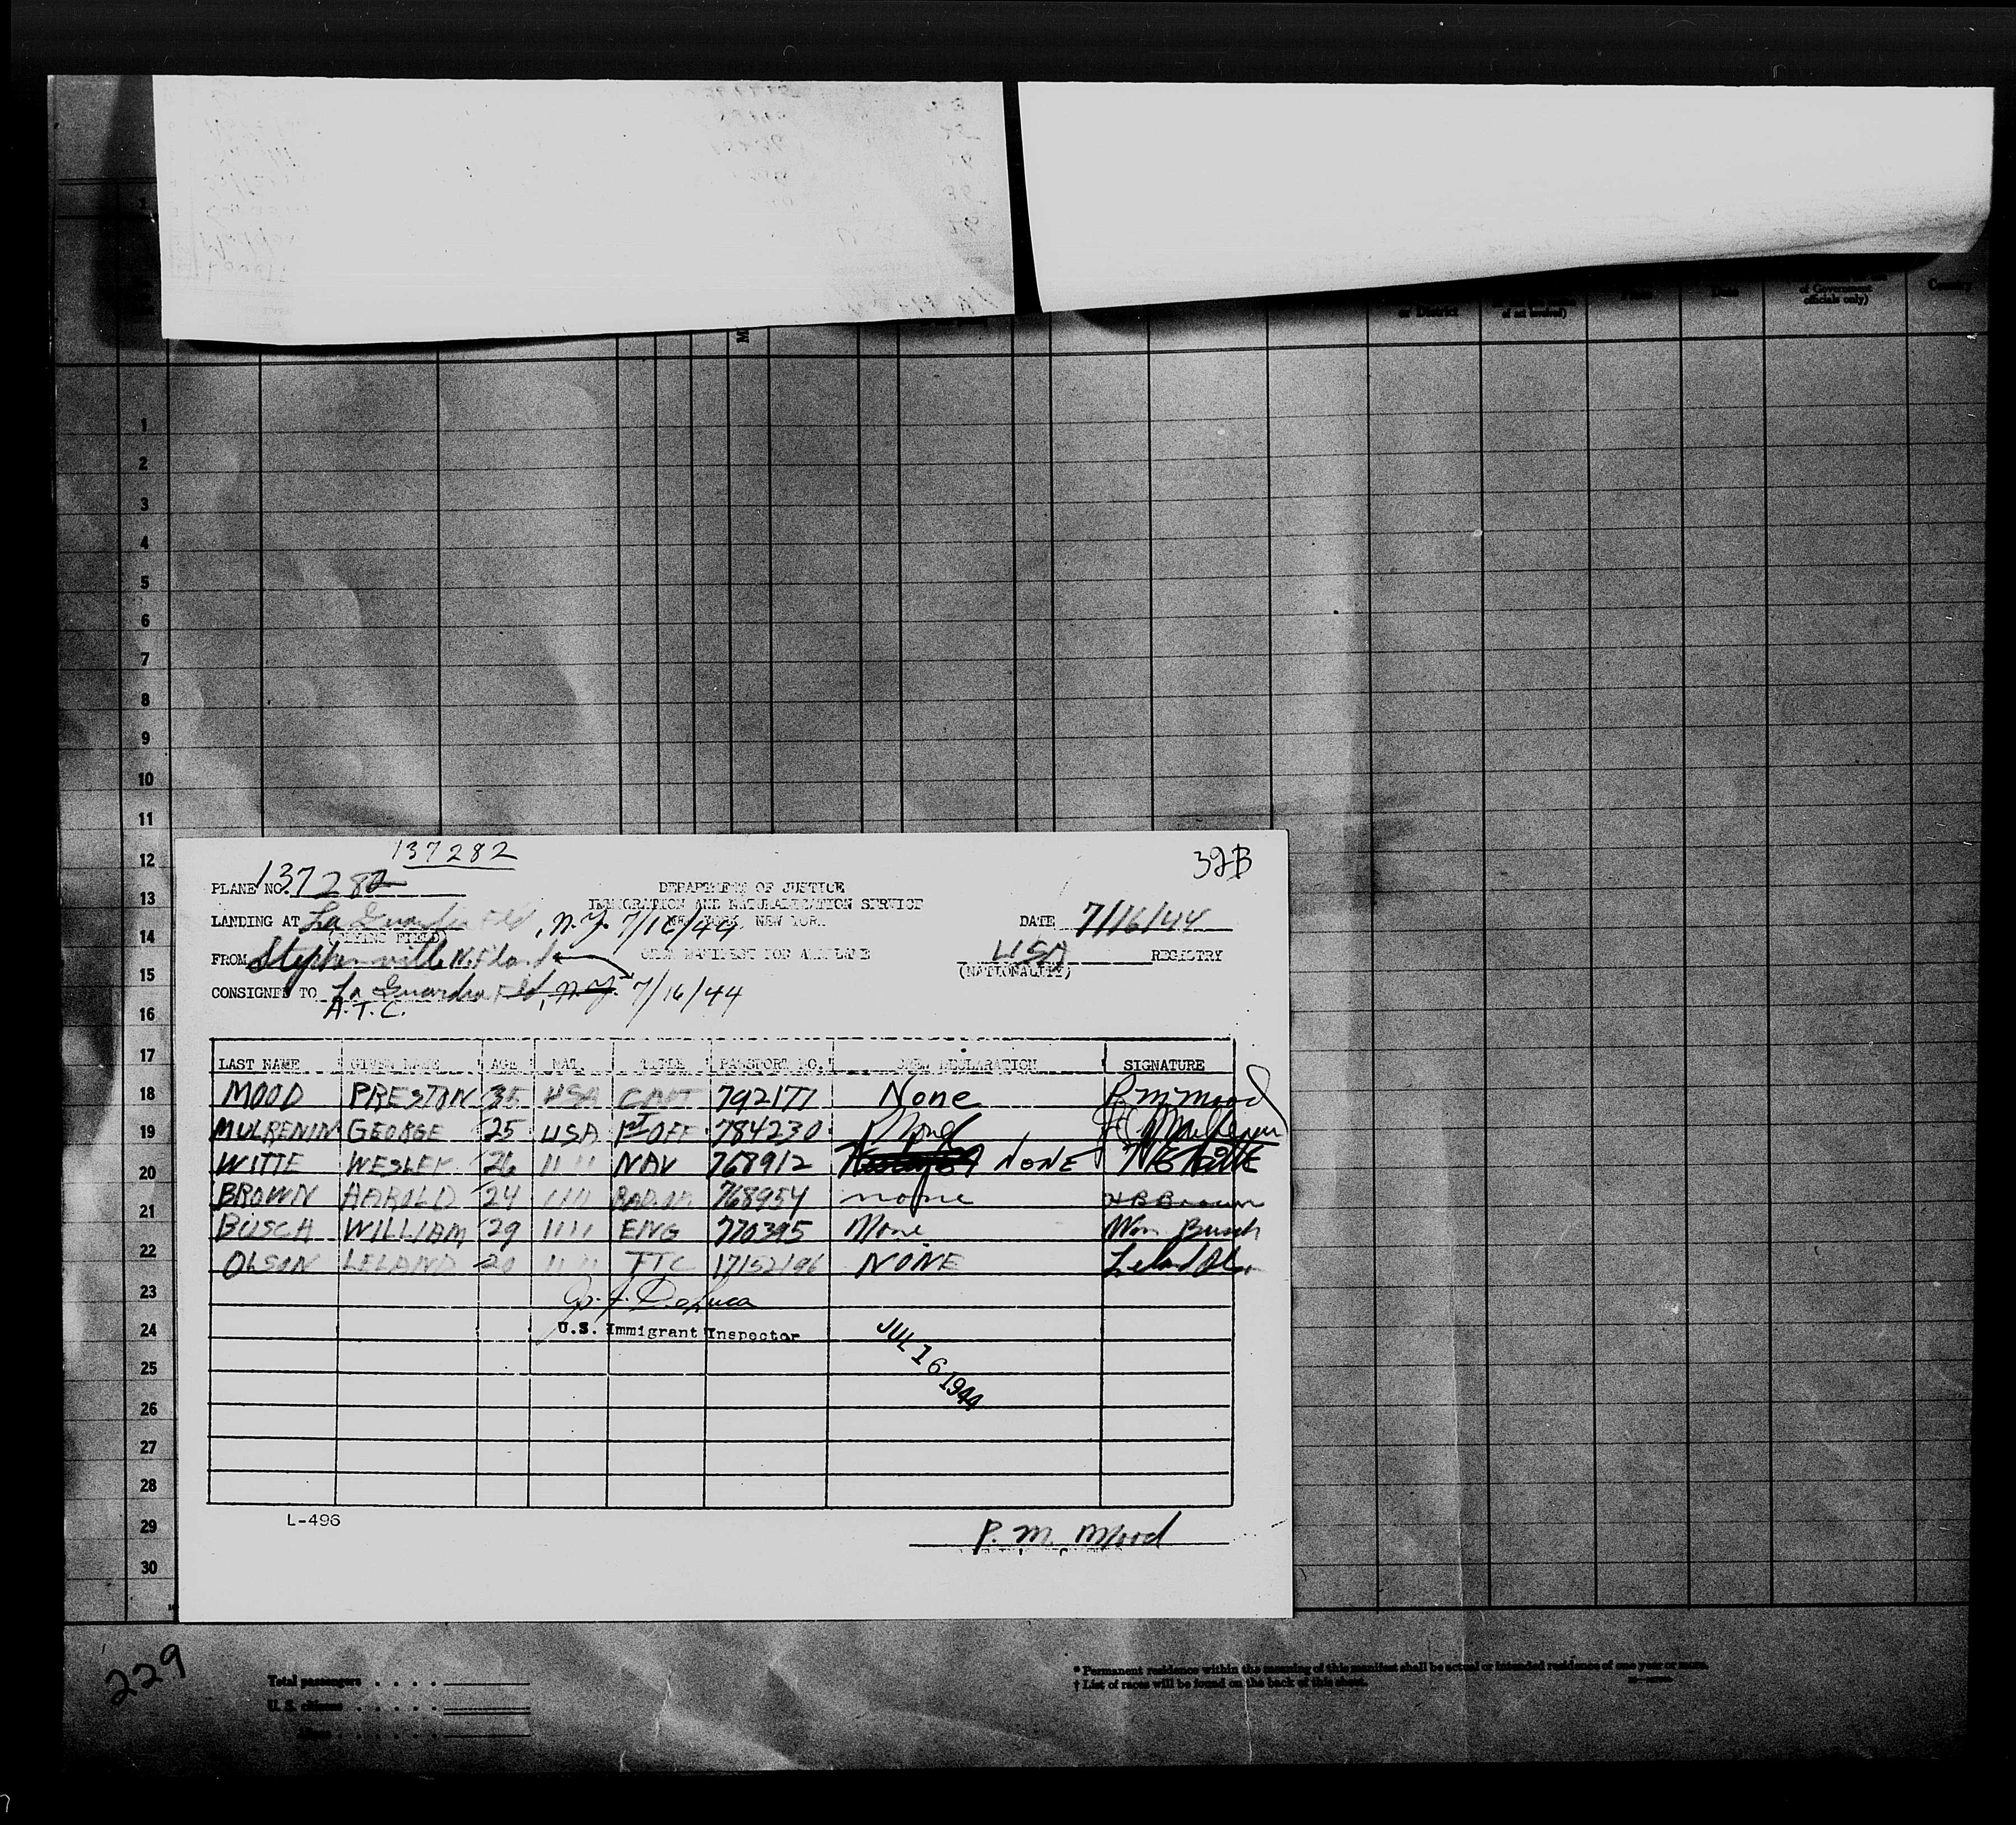 or District
of Government
officials only)
Country
1
2
3
4
5
6
7
8
9
10
11
12
13
14
15
16
17
18
19
20
21
22
23
24
25
26
27
28
29
30
137282
32B
PLANE NO. 137282
DEPARTMENT OF JUSTICE
IMMIGRATION AND NATURALIZATION SERVICE
NEW YORK, NEW YORK
LANDING AT La Guardia Fld, N.Y. 7/16/44
DATE 7/16/44
(FLYING FIELD)
FROM Stephenville N.Fland
CREW MANIFEST FOR AIRPLANE
USA REGISTRY
(NATIONALITY)
CONSIGNED TO La Guardia Fld, N.Y. 7/16/44
A.T.C.
LAST NAME GIVEN NAME AGE NAT. TITLE PASSPORT NO. CREW DECLARATION SIGNATURE
MOOD PRESTON 35 USA CAPT 792177 None P M Mood
MULRENIN GEORGE 25 USA 1ST OFF 784230 None
WITTE WESLEY 26 " " NAV 768912 NONE
BROWN HAROLD 24 " " RAD.OP. 768954 none H B Brown
BUSCH WILLIAM 29 " " ENG 770395 None Wm Busch
OLSON LELAND 20 " " FTC 17152196 NONE Leland Olson
J. DeLuca
U.S. Immigrant Inspector
JUL 16 1944
L-496
P. M. Mood
229
Total passengers . . . .
U. S. citizens . . . . .
Aliens . . . . . .
* Permanent residence within the meaning of this manifest shall be actual or intended residence of one year or more.
† List of races will be found on the back of this sheet.